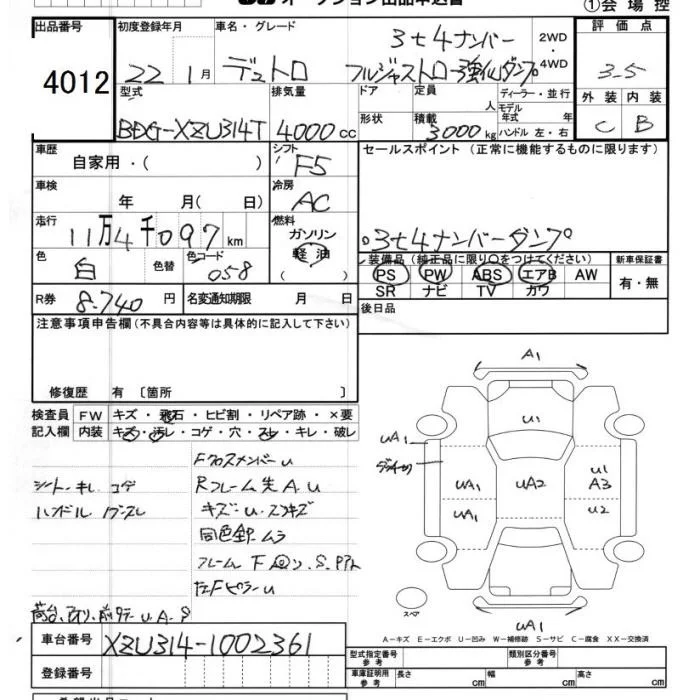 オークション出品申込書
①会場控
出品番号
4012
初度登録年月
22 1月
車名・グレード
デュトロ
3t4ナンバー
フルジャストロー強化ダンプ
2WD
・
4WD
評価点
3.5
外装 内装
C B
型式
BDG-XZU314T
排気量
4000cc
ドア
形状
定員
人
積載
3000kg
ディーラー・並行
モデル
年式 年
ハンドル 左・右
車歴
自家用・( )
シフト
F5
セールスポイント (正常に機能するものに限ります)
車検
年 月( 日)
冷房
AC
走行
11万4千097km
燃料
ガソリン
軽油
○3t4ナンバーダンプ
色
白
色替
色コード
058
装備品(純正品に限り○をつけてください)
PS PW ABS エアB AW
SR ナビ TV カワ
新車保証書
有・無
R券
8.740円
名変通知期限 月 日
後日品
注意事項申告欄(不具合内容等は具体的に記入して下さい)
修復歴 有 〔箇所 〕
検査員
記入欄
FW キズ・飛石・ヒビ割・リペア跡・×要
内装 キズ・汚レ・コゲ・穴・スレ・キレ・破レ
シート・キレ コゲ
ハンドル
FクロスメンバーU
Rフレーム先A.U
キズ・U・スリキズ
同色全ムラ
フレーム下
左FピラーU
A1
U1
UA1
UA1
UA2
U1
A3
UA1
U2
スペア
UA1
A-キズ E-エクボ U-凹み W-補修跡 S-サビ C-腐食 XX-交換済
車台番号
XZU314-1002361
登録番号
型式指定番号
参考
類別区分番号
参考
車庫証明用
参考
長さ cm 幅 cm 高さ cm